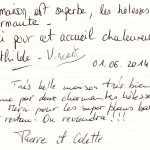 maison est superbe, les hôtesses
charmante -
ci pour cet accueil chaleureux
thilde - Vincent
01.06.2014
Très belle maison très bien
par deux charmantes hôtesses
pour les super plans bars
restau. On reviendra !!!
Pierre et Odette